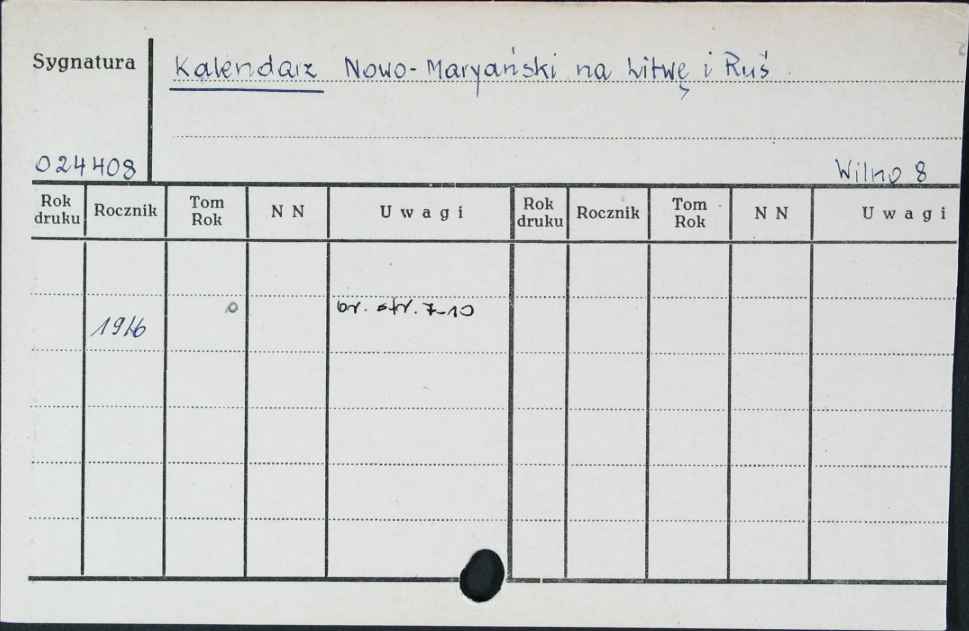 Sygnatura Kalendarz Nowo-Maryański na Litwę i Ruś
024408 Wilno 8
Rok druku Rocznik Tom Rok N N U w a g i Rok druku Rocznik Tom Rok N N U w a g i
br. str. 7-10